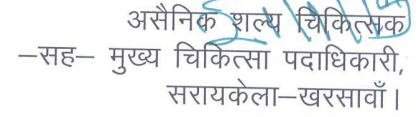 असैनिक शल्य चिकित्सक
–सह– मुख्य चिकित्सा पदाधिकारी,
सरायकेला–खरसावाँ।